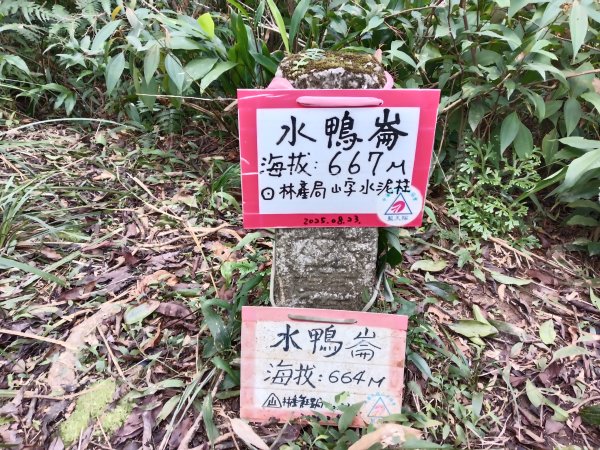 水鴨崙
海拔:667M
林產局 山字水泥柱
2025.08.23
藍天隊
水鴨崙
海拔:664M